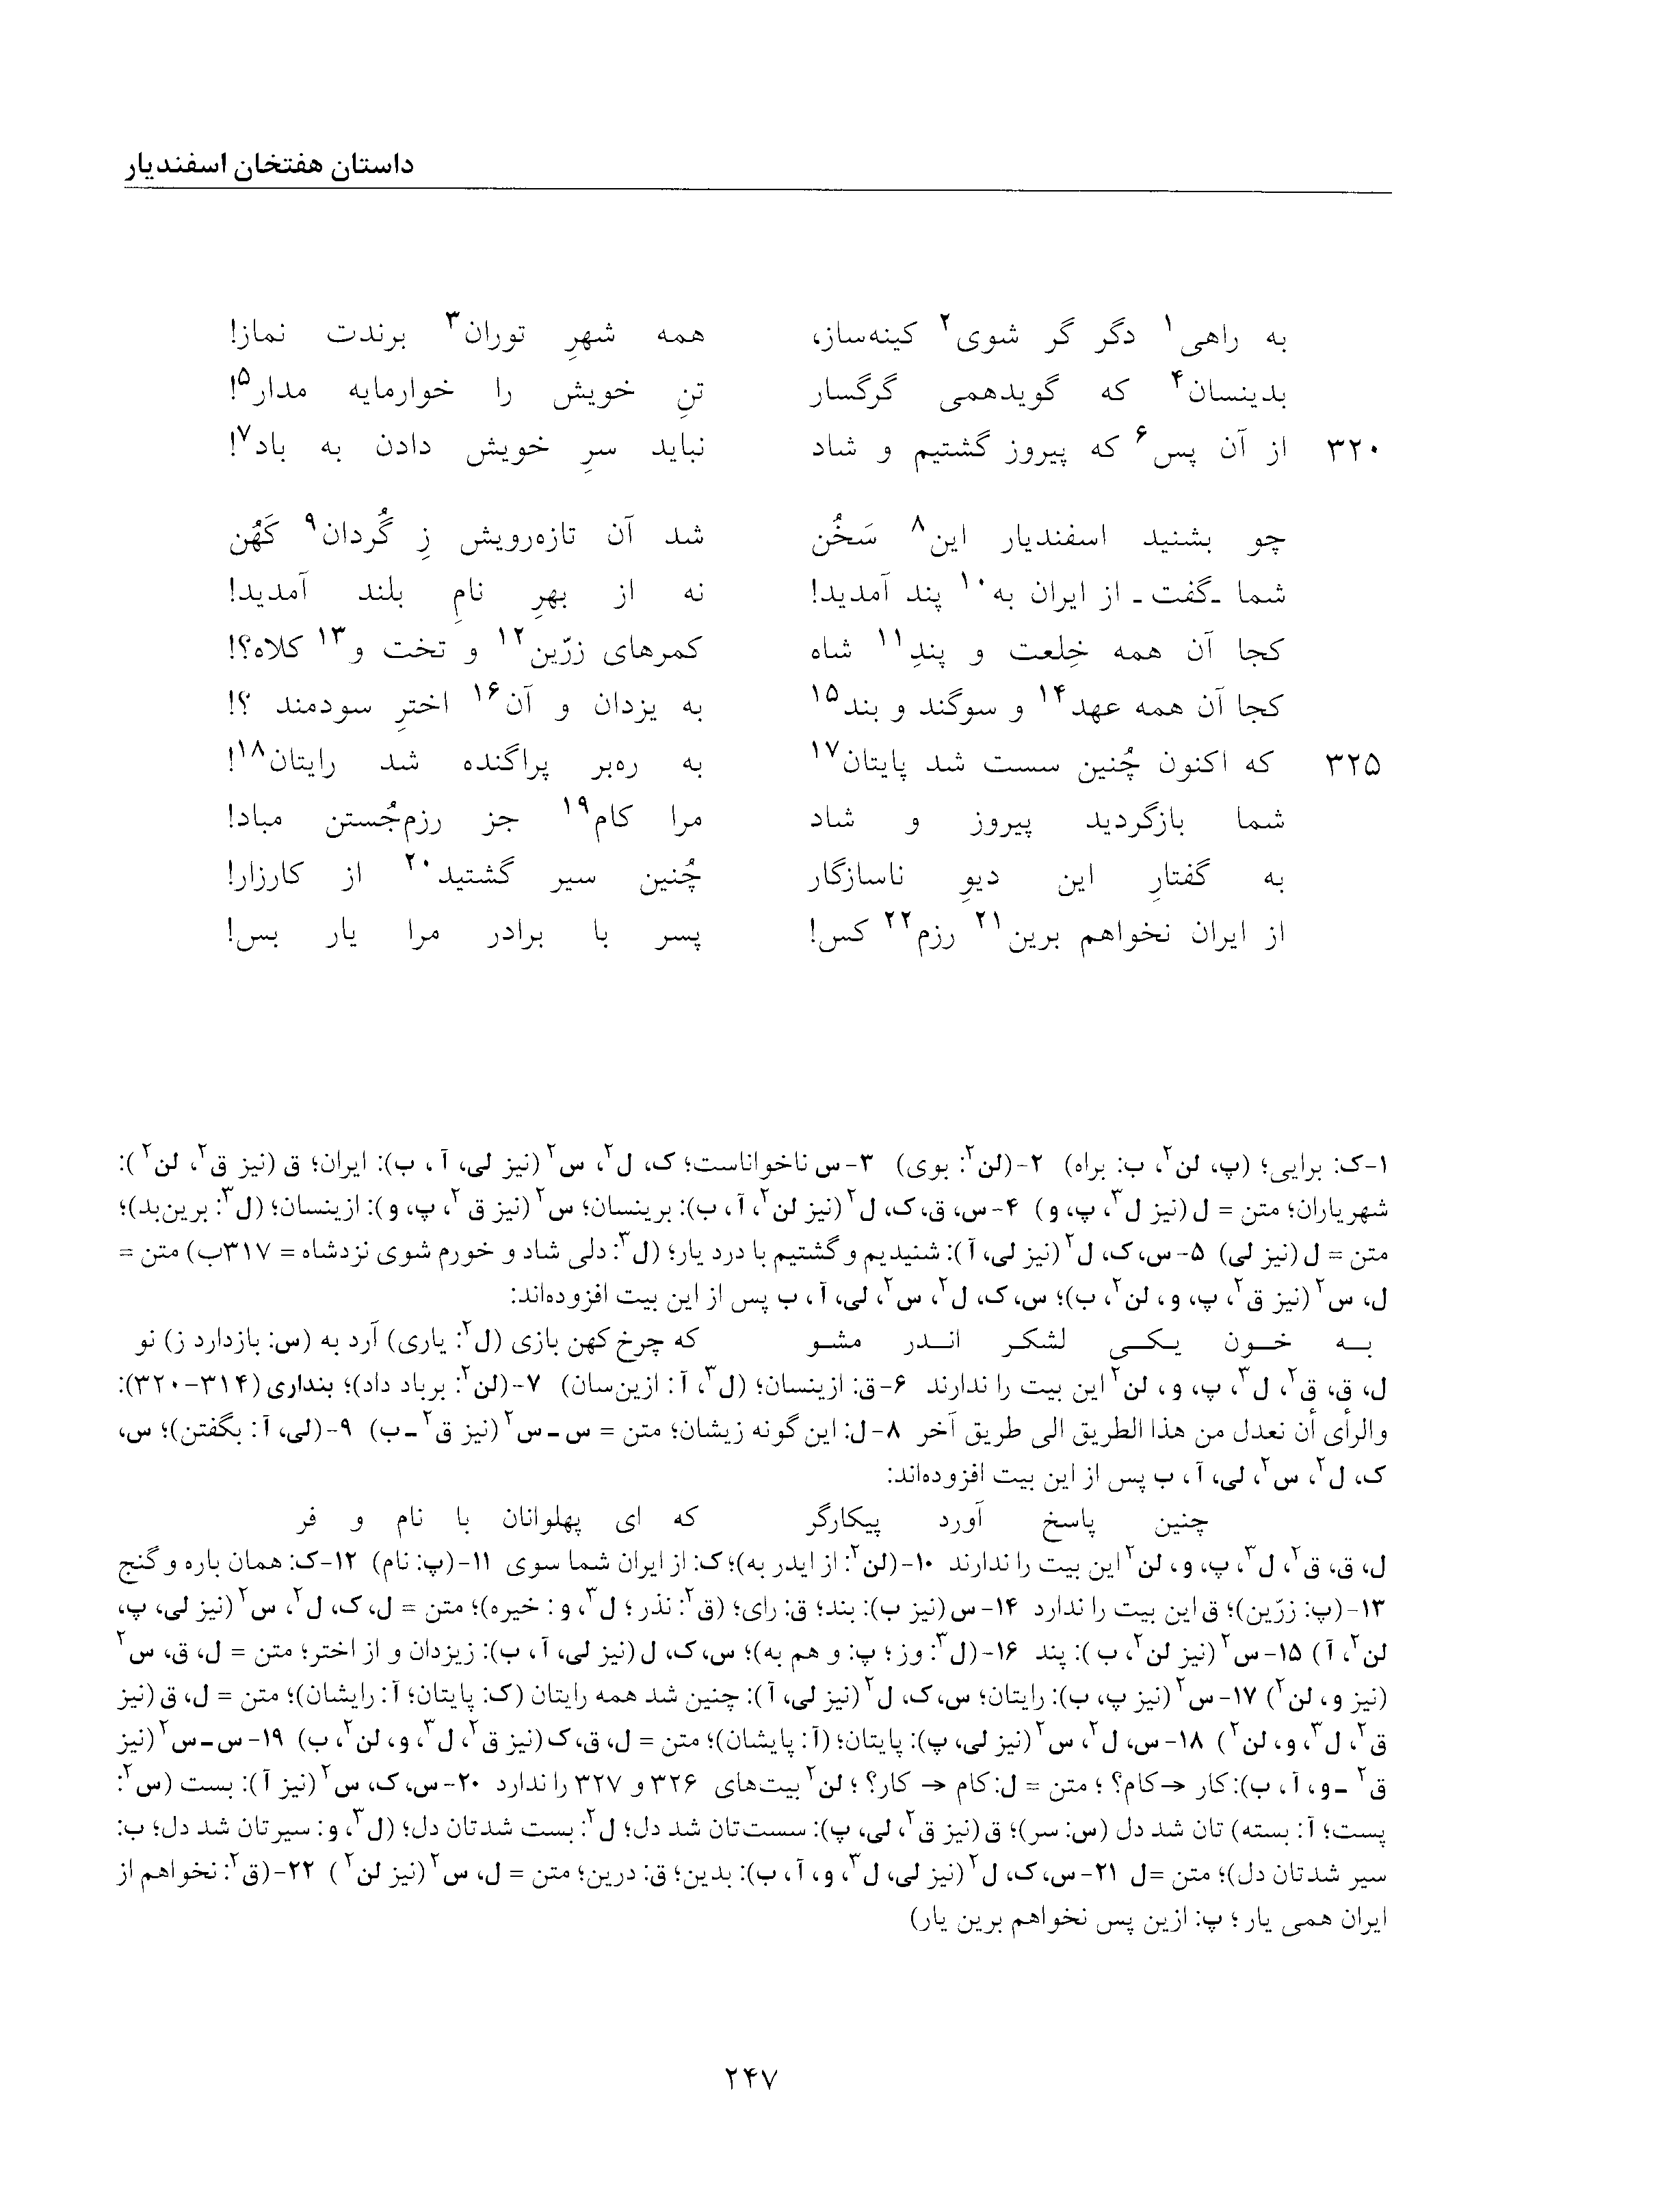 داستان هفتخان اسفندیار
به راهی۱ دگر گر شوی۲ کینه‌ساز، همه شهرِ توران۳ برندت نماز!
بدینسان۴ که گویدهمی گرگسار تنِ خویش را خوارمایه مدار۵!
۳۲۰ از آن پس۶ که پیروز گشتیم و شاد نباید سرِ خویش دادن به باد۷!
چو بشنید اسفندیار این۸ سَخُن شد آن تازه‌رویش زِ گُردان۹ کَهُن
شما ـ گفت ـ از ایران به۱۰ پند آمدید! نه از بهرِ نامِ بلند آمدید!
کجا آن همه خِلعت و پندِ۱۱ شاه کمرهای زرّین۱۲ و تخت و۱۳ کلاه؟!
کجا آن همه عهد۱۴ و سوگند و بند۱۵ به یزدان و آن۱۶ اخترِ سودمند ؟!
۳۲۵ که اکنون چُنین سست شد پایتان۱۷ به ره‌بر پراگنده شد رایتان۱۸!
شما بازگردید پیروز و شاد مرا کام۱۹ جز رزم‌جُستن مباد!
به گفتارِ این دیوِ ناسازگار چُنین سیر گشتید۲۰ از کارزار!
از ایران نخواهم برین۲۱ رزم۲۲ کس! پسر با برادر مرا یار بس!
۱-ک: برایی؛ (پ، لن۲، ب: براه) ۲-(لن۲: بوی) ۳-س ناخواناست؛ ک، ل۲، س۲ (نیز لی، آ، ب): ایران؛ ق (نیز ق۲، لن۲):
شهریاران؛ متن = ل (نیز ل۳، پ، و) ۴-س، ق، ک، ل۲ (نیز لن۲، آ، ب): برینسان؛ س۲ (نیز ق۲، پ، و): ازینسان؛ (ل۳: برین‌بد)؛
متن = ل (نیز لی) ۵-س، ک، ل۲ (نیز لی، آ): شنیدیم و گشتیم با درد یار؛ (ل۳: دلی شاد و خورم شوی نزدشاه = ۳۱۷ب) متن =
ل، س۲ (نیز ق۲، پ، و، لن۲، ب)؛ س، ک، ل۲، س۲، لی، آ، ب پس از این بیت افزوده‌اند:
بــه خــون یـکــی لشکـر انــدر مشـو که چرخ کهن بازی (ل۲: یاری) آرد به (س: بازدارد ز) نو
ل، ق، ق۲، ل۳، پ، و، لن۲ این بیت را ندارند ۶-ق: ازینسان؛ (ل۳، آ: ازین‌سان) ۷-(لن۲: برباد داد)؛ بنداری (۳۱۴-۳۲۰):
والرأی أن نعدل من هذا الطریق الی طریق آخر ۸-ل: این گونه زیشان؛ متن = س-س۲ (نیز ق۲ـب) ۹-(لی، آ: بگفتن)؛ س،
ک، ل۲، س۲، لی، آ، ب پس از این بیت افزوده‌اند:
چنین پاسخ آورد پیکارگر که ای پهلوانان با نام و فر
ل، ق، ق۲، ل۳، پ، و، لن۲ این بیت را ندارند ۱۰-(لن۲: از ایدر به)؛ ک: از ایران شما سوی ۱۱-(پ: نام) ۱۲-ک: همان باره و گنج
۱۳-(پ: زرّین)؛ ق این بیت را ندارد ۱۴-س (نیز ب): بند؛ ق: رای؛ (ق۲: نذر؛ ل۳، و: خیره)؛ متن = ل، ک، ل۲، س۲ (نیز لی، پ،
لن۲، آ) ۱۵-س۲ (نیز لن۲، ب): پند ۱۶-(ل۳: وز؛ پ: و هم به)؛ س، ک، ل (نیز لی، آ، ب): زیزدان و از اختر؛ متن = ل، ق، س۲
(نیز و، لن۲) ۱۷-س۲ (نیز پ، ب): رایتان؛ س، ک، ل۲ (نیز لی، آ): چنین شد همه رایتان (ک: پایتان؛ آ: رایشان)؛ متن = ل، ق (نیز
ق۲، ل۳، و، لن۲) ۱۸-س، ل۲، س۲ (نیز لی، پ): پایتان؛ (آ: پایشان)؛ متن = ل، ق، ک (نیز ق۲، ل۳، و، لن۲، ب) ۱۹-س-س۲ (نیز
ق۲ ـ و، آ، ب): کار → کام؟ ؛ متن = ل: کام → کار؟ ؛ لن۲ بیت‌های ۳۲۶ و ۳۲۷ را ندارد ۲۰-س، ک، س۲ (نیز آ): بست (س۲:
پست؛ آ: بسته) تان شد دل (س: سر)؛ ق (نیز ق۲، لی، پ): سست‌تان شد دل؛ ل۲: بست شدتان دل؛ (ل۳، و: سیرتان شد دل؛ ب:
سیر شدتان دل)؛ متن =ل ۲۱-س، ک، ل۲ (نیز لی، ل۳، و، آ، ب): بدین؛ ق: درین؛ متن = ل، س۲ (نیز لن۲) ۲۲-(ق۲: نخواهم از
ایران همی یار ؛ پ: ازین پس نخواهم برین یار)
۲۴۷